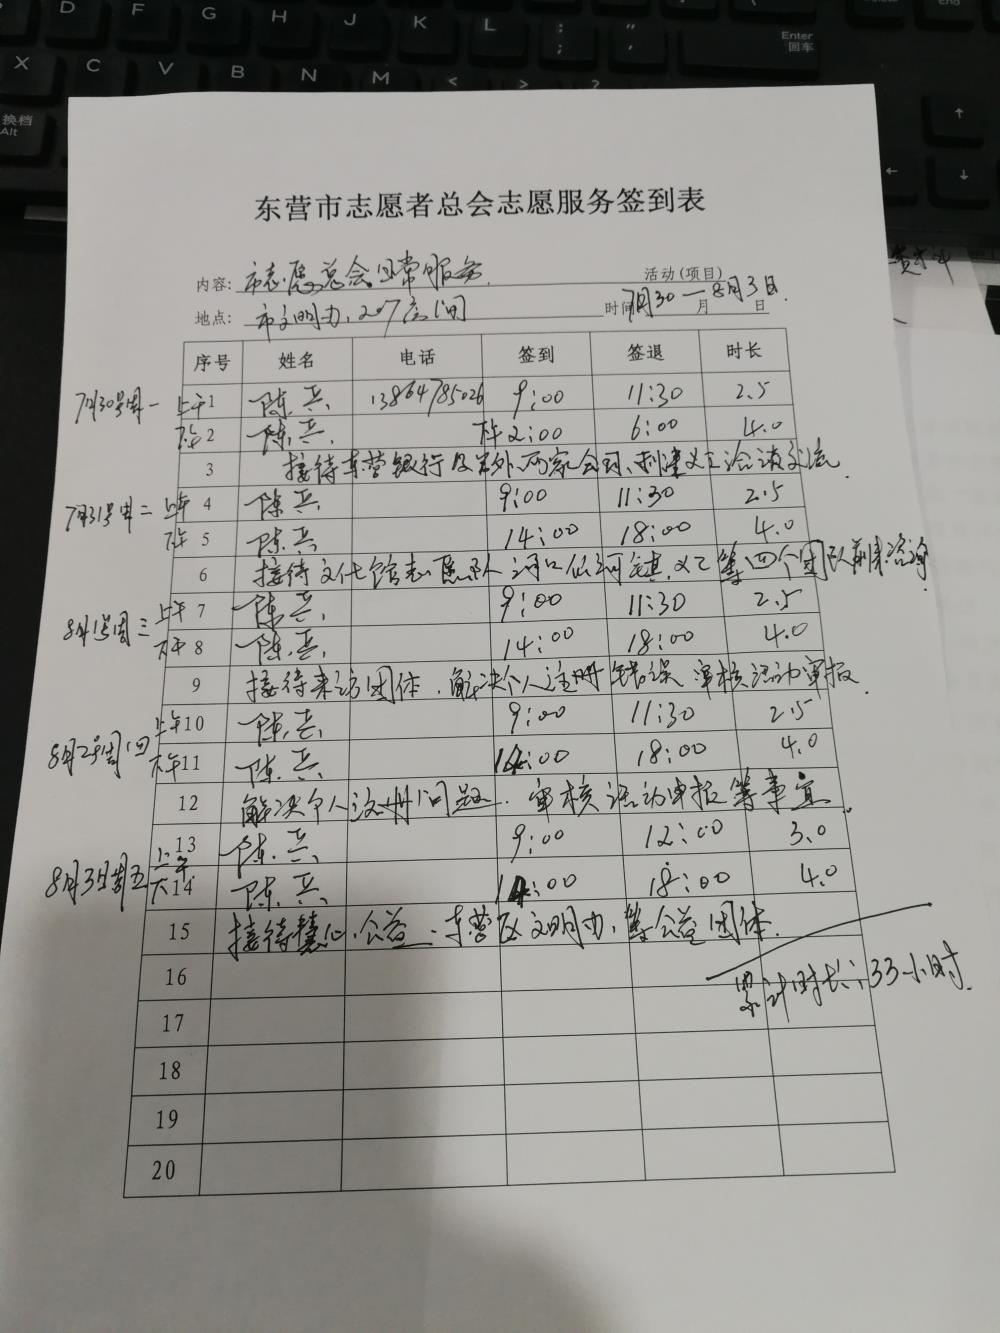 D F G H J K L : ; " ' Enter 回车
X C V B N M < >
换档 Alt ↑ ← ↓
东营市志愿者总会志愿服务签到表
内容: 市志愿总会日常服务 活动(项目)
地点: 市文明办,207房间 时间 7月30—8月3日. 月 日
序号 姓名 电话 签到 签退 时长
7月30号周一 上午 1 陈兵 13864785026 9:00 11:30 2.5
下午 2 陈兵 下午2:00 6:00 4.0
3 接待东营银行及另外两家公司、利津义工洽谈交流.
7月31号周二 上午 4 陈兵 9:00 11:30 2.5
下午 5 陈兵 14:00 18:00 4.0
6 接待文化馆志愿 河口 河镇 义工等四个团队前来咨询
8月1号周三 上午 7 陈兵 9:00 11:30 2.5
下午 8 陈兵 14:00 18:00 4.0
9 接待来访团体.解决个人注册错误 审核活动审报.
8月2号周四 上午 10 陈兵 9:00 11:30 2.5
下午 11 陈兵 14:00 18:00 4.0
12 解决个人注册问题.审核活动审报等事宜.
8月3日周五 上午 13 陈兵 9:00 12:00 3.0
下午 14 陈兵 14:00 18:00 4.0
15 接待 公益.东营区文明办,等公益团体.
16 累计时长:33小时.
17
18
19
20